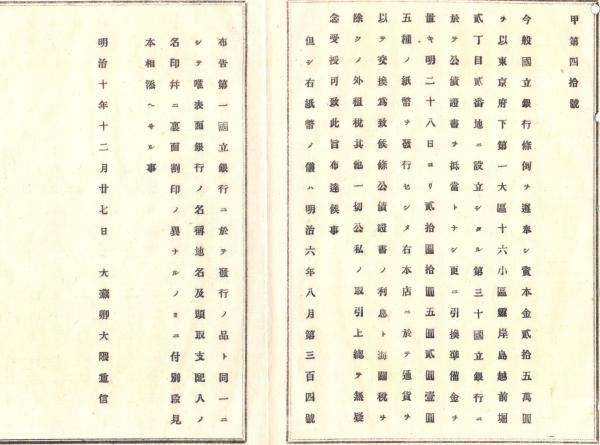 甲第四拾號
今般國立銀行條例ヲ遵奉シ資本金貳拾五萬圓
ヲ以東京府下第一大區十六小區靈岸島越前堀
貳丁目貳番地ニ設立シタル第三十國立銀行ニ
於テ公債證書ヲ抵當トナシ更ニ引換準備金ヲ
置キ明二十八日ヨリ貳拾圓拾圓五圓貳圓壹圓
五種ノ紙幣ヲ發行セシメ右本店ニ於テ通貨ヲ
以テ交換為致候條公債證書ノ利息ト海關稅ヲ
除クノ外租稅其他一切公私ノ取引上總テ無疑
念受授可致此旨布達候事
但シ右紙幣ノ儀ハ明治六年八月第三百四號
布告第一國立銀行ニ於テ發行ノ品ト同一ニ
シテ唯表面銀行ノ名稱地名及頭取支配人ノ
名印幷ニ裏面割印ノ異ナルノミニ付別段見
本相添ヘサル事
明治十年十二月廿七日 大藏卿大隈重信